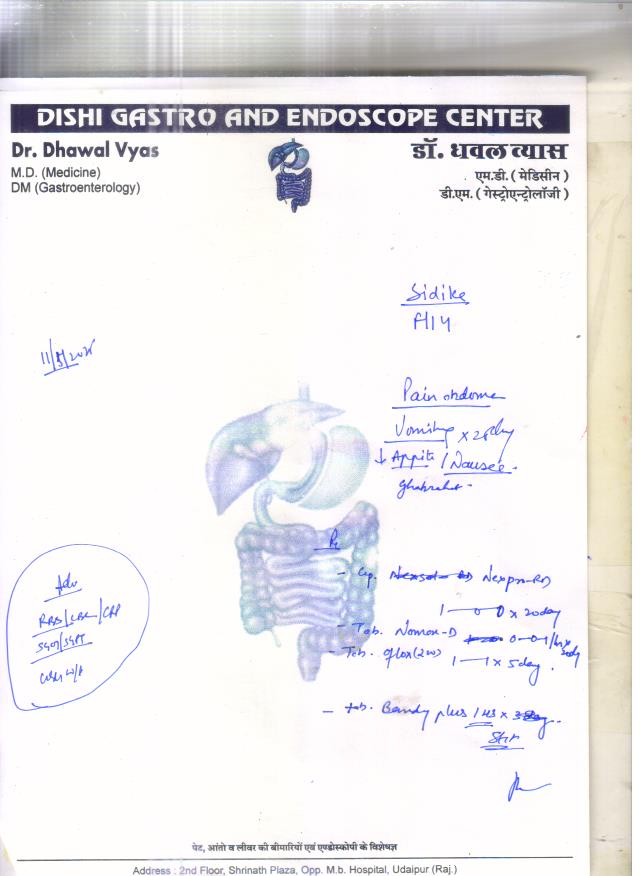 DISHI GASTRO AND ENDOSCOPE CENTER
Dr. Dhawal Vyas
M.D. (Medicine)
DM (Gastroenterology)
डॉ. धवल व्यास
एम.डी. ( मेडिसीन )
डी.एम. ( गेस्ट्रोएन्ट्रोलॉजी )
Sidike
F/14
Pain abdome
Vomiting x
↓ Appite / Nausea -
Ghabrahat -
Rx
- Cap. Nexpro-RD
1-0-0 x 20day
- Tab. Nomox-D 0-0-1
- Tab. Oflox (200) 1-1 x 5day.
- tab. Bandy plus 1 HS x
Adv
RBS / CBC / CRP
SGOT/SGPT
पेट, आंतो व लीवर की बीमारियों एवं एण्डोस्कोपी के विशेषज्ञ
Address : 2nd Floor, Shrinath Plaza, Opp. M.b. Hospital, Udaipur (Raj.)